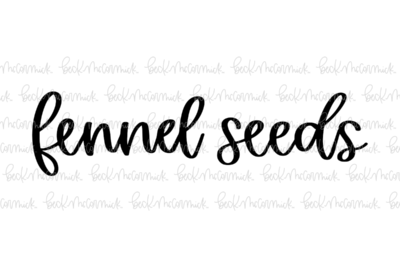 fennel seeds